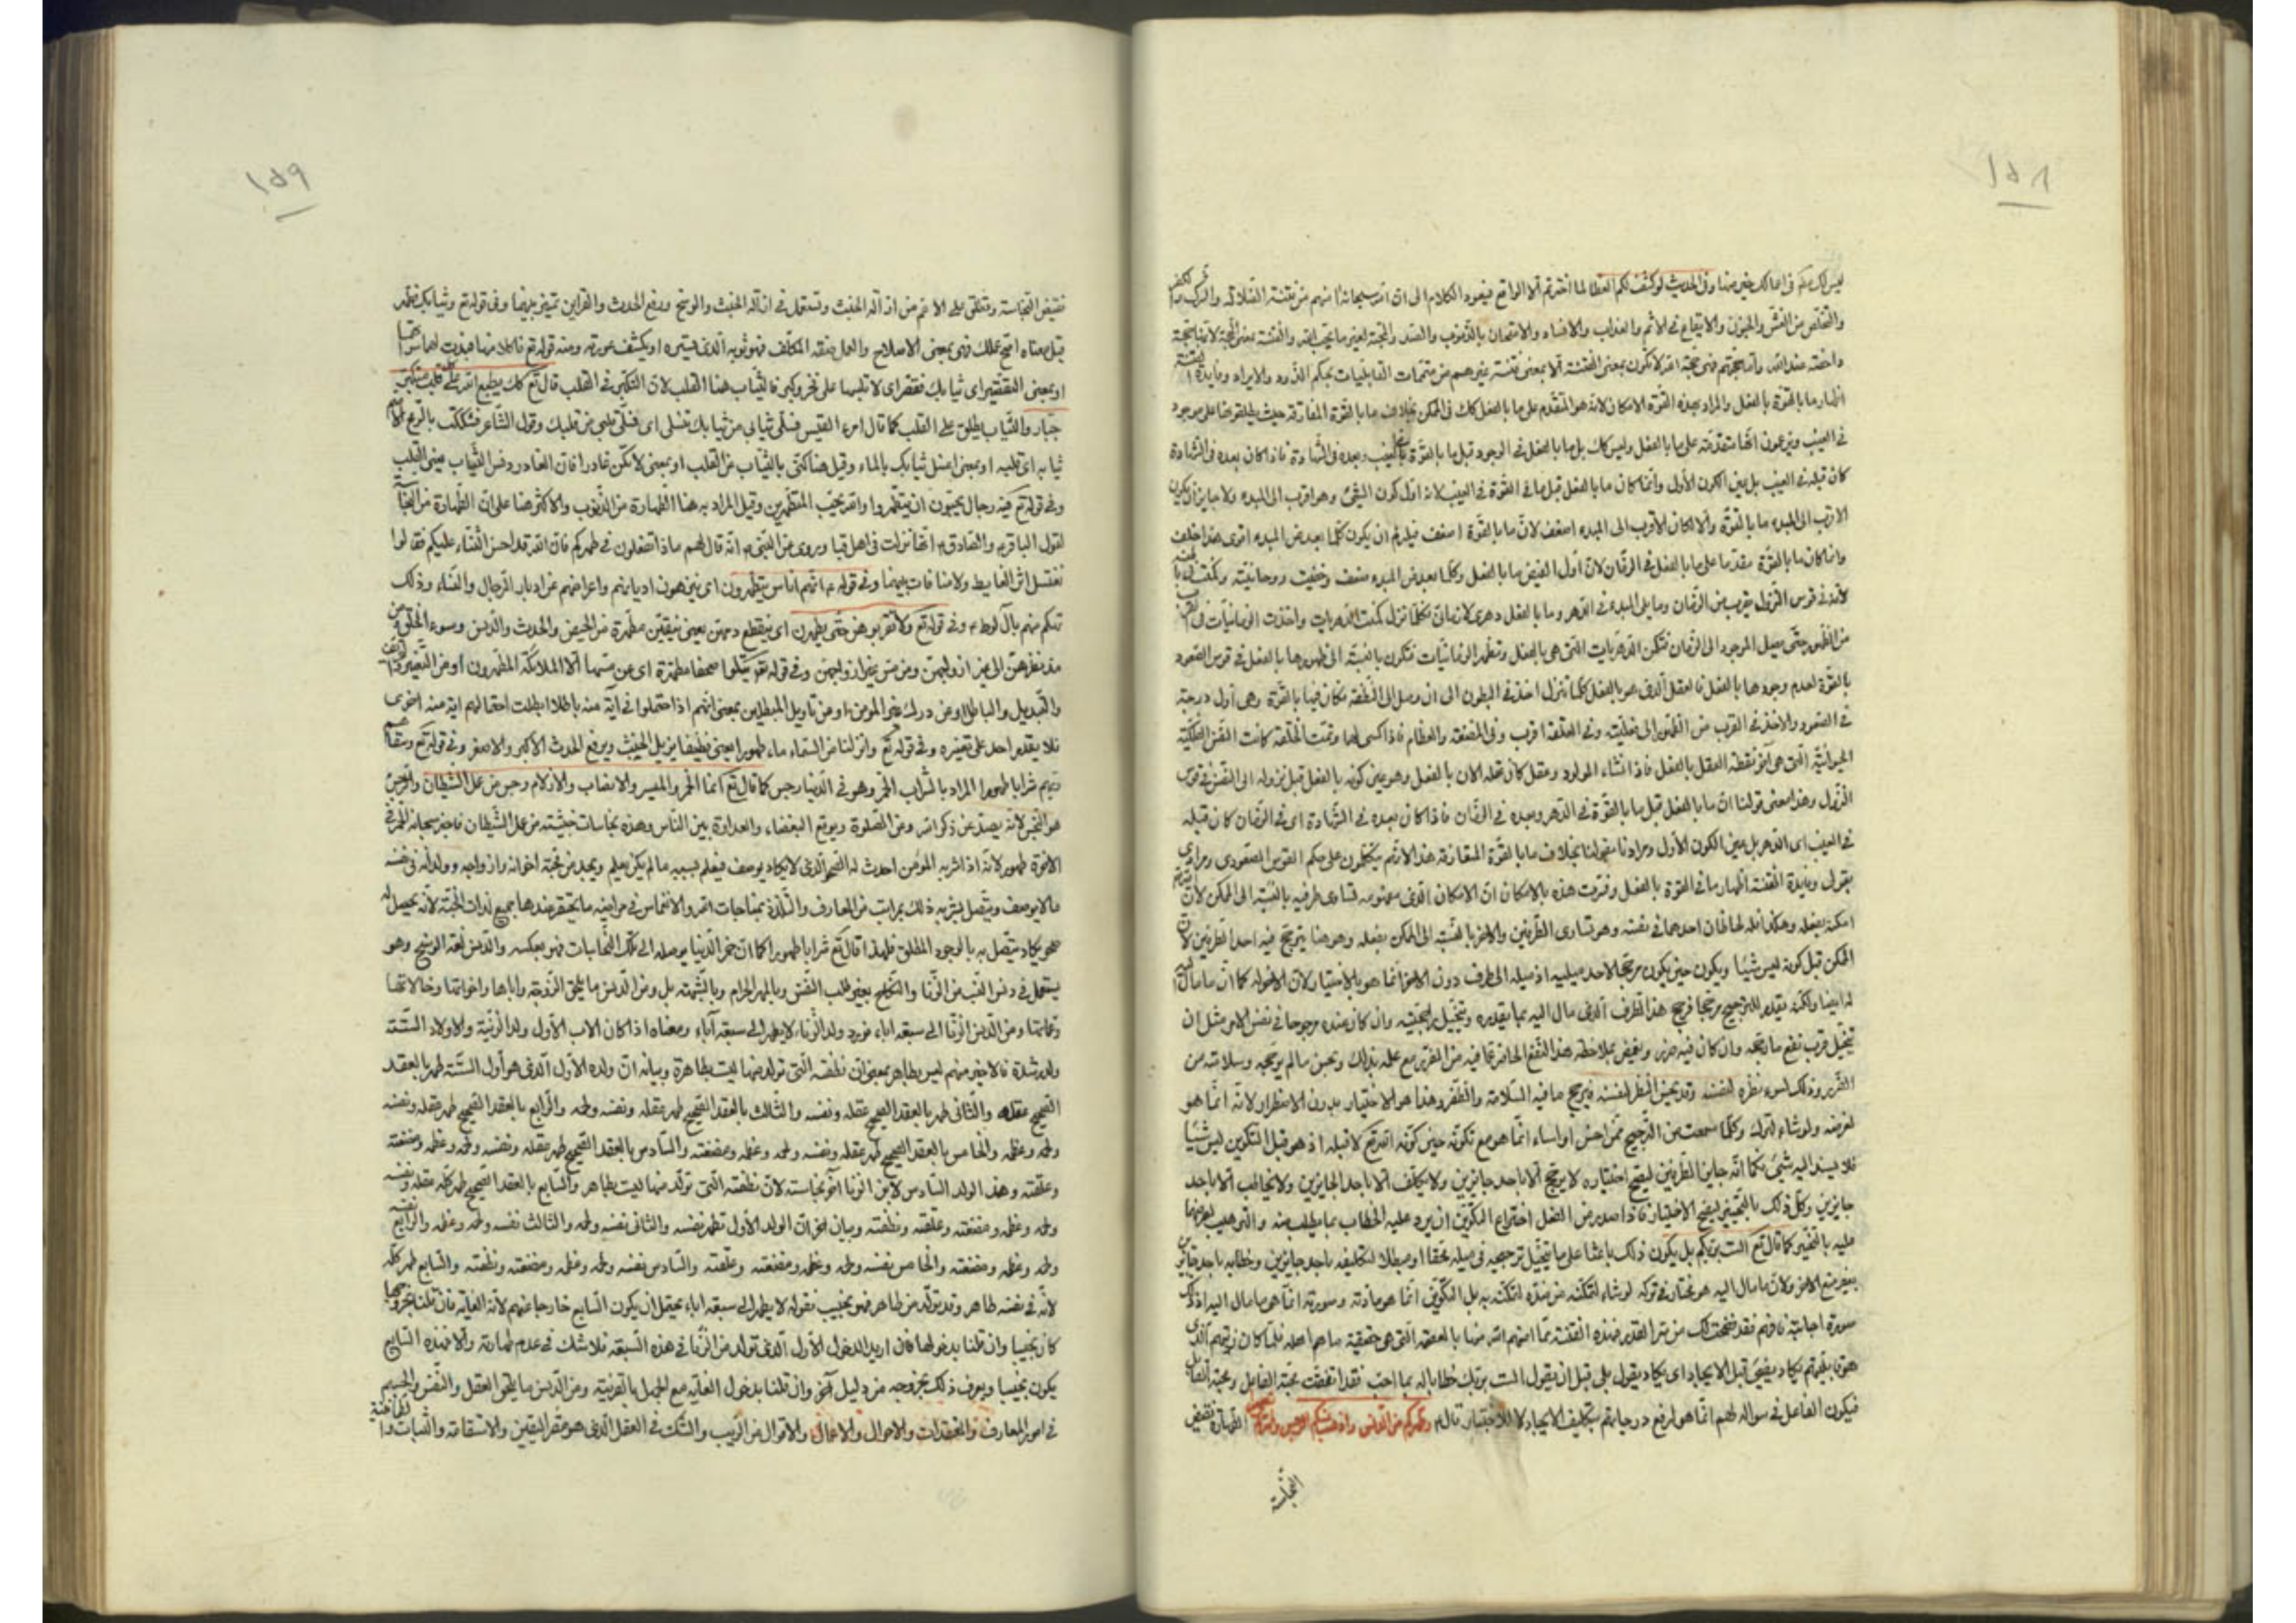 ١٥٨
ليس لك عليكم في امالك غير منها وفي الحديث لو كشف لكم الغطا لما اخترتم الا الواقع فيعود الكلام الى ان الله سبحانه
والتخلص من الغش والجنون والايقاع في الاثم والعذاب والافساد والامتحان بالذنوب والصد والمحبة لغير ما يحب الله والفتنة بمعنى الحجة
داحضة عند الله
اظهار ما بالقوة بالفعل والمراد بهذه القوة الامكان لانه هو المتقدم على ما بالفعل كك في الممكن بخلاف ما بالقوة المفارقة حيث
في الغيب ويزعمون انها متقدمة على ما بالفعل وليس كك بل ما بالفعل في الوجود قبل ما بالقوة في الغيب وبعده في الشهادة فاذا كان بعده في الشهادة
كان قبله في الغيب بل بين الكون الأول وانما كان ما بالفعل قبل ما في القوة في الغيب لانه اول كون الشيء وهو اقرب الى المبدء ولا جايز ان يكون
الاقرب الى المبدء ما بالقوة والا لكان الاقرب الى المبدء اضعف لان ما بالقوة اضعف فيلزم ان يكون كلما بعد من المبدء اقوى هذا خلف
وانما كان ما بالقوة مقدما على ما بالفعل في الزمان لان اول الفيض ما بالفعل وكلما بعد من المبدء ضعف وخفيت روحانيته
لانه في قوس النزول يقرب من الزمان وما يلي المبدء في الدهر وما بالفعل دهري لا زماني فكلما نزل كمنت الدهريات واخذت الزمانيات في
من الظهور حتى يصل الموجود الى الزمان فتكمن الدهريات التي هي بالفعل وتظهر الزمانيات فتكون بالنسبة الى ظهورها بالفعل في قوس الصعود
بالقوة لعدم وجودها بالفعل فالعقل الذي هو بالفعل كلما تنزل اخذ في البطون الى ان وصل الى النطفة فكان فيها بالقوة وهي اول درجة
في الصعود والاخذ في القرب من الظهور الى فعليته وفي العلقة اقرب وفي المضغة والعظام فاذا كسي لحما وتمت الخلقة كانت النفس الفلكية
الحيوانية التي هي اخر نقطة العقل بالعقل فاذا انشاء المولود وعقل كان عقله الان بالفعل وهو عين كونه بالفعل قبل نزوله الى النفس في قوس
النزول وهذا معنى قولنا ان ما بالفعل قبل ما بالقوة في الدهر وبعده في الزمان فاذا كان بعده في الشهادة اي في الزمان كان قبله
في الغيب اي الدهر بل بين الكون الأول ومرادنا بقولنا بخلاف ما بالقوة المفارقة هذا لانهم يتكلمون على حكم القوس الصعودي ومرادي
بقولي وفايدة الفتنة اظهار ما في القوة بالفعل وفسرت هذه بالامكان ان الامكان الذي مفهومه تساوي طرفيه بالنسبة الى الممكن لان
امكنه بفعله وهكذا فله لحاظان احدهما في نفسه وهو تساوي الطرفين والاخر بالنسبة الى الممكن بفعله وهو هنا يترجح فيه احد الطرفين لان
الممكن قبل كونه ليس شيئا ويكون حين يكون مرجحا لاحد ميليه اذ ميله الى طرف دون الاخر انما هو بالاختيار لان الاخر له كما ان ما مال
له ايضا ولكنه يقدم للترجيح مرجحا فرجح هذا الطرف الذي مال اليه بما يقدره وتخيل ارجحيته وان كان عنده مرجوحا في نفس الامر مثل ان
تخيل قرب نفع ما رجحه وان كان فيه ضرر وبغض بملاحظة هذا النفع الحاضر عما فيه من الضرر مع علمه بذلك وحسن ما لم يرجحه وسلامته من
الضرر وذلك لسوء نظره لنفسه وقد يحسن النظر لنفسه فيرجح ما فيه السلامة والظفر وهذا هو الاختيار بدون الاضطرار لانه انما هو
لغرضه ولو شاء لترك وكلما سمعت من الترجيح ممن احسن او اساء انما هو مع تكونه حين كونه الله تع لا قبله اذ هو قبل التكوين ليس شيئا
فلا يسند اليه شيء فكما انه جايز الطرفين ليصح اختياره لا يرجح الا باحد جايزين ولا يكلف الا باحد الجايزين ولا يخاطب الا باحد
جايزين وكل ذلك بالتخيير ليصح الاختيار فاذا صدر من الفعل اختراع التكوين ان يرد عليه الخطاب بما يطلب منه
عليه بالتخيير كما قال تع الست بربكم بل يكون ذلك باعثا على ما يتخيل ترجيحه في ميله محقا او مبطلا لتكليفه باحد جايزين وخطابه باحد جايزين
بغير منع الاخر ولان ما مال اليه هو مختار في تركه لو شاء لتمكنه من ضده لتمكنه به بل التكوين انما هو مادته وصورته انما هي ما مال اليه
صورة اجابته فافهم فقد فتحت لك من سر القدر فهذه الفتنة مما امنهم الله منها بالعصمة التي هي حقيقة ما هم اهله فلما كان زيتهم الذي
هو قابليتهم يكاد يضيء قبل الايجاد اي يكاد يقول بلى قبل ان يقول الست بربك خطابا له بما احب فقد اتحققت محبة الفاعل ومحبة القابل
فيكون الفاعل في سؤاله لهم انما هو لرفع درجاتهم بتكليف الايجاد لا للاختبار قال وطهركم من الدنس واذهب عنكم الرجس الطهارة نقيض
النجاسة
١٥٩
نقيض النجاسة وتطلق على الاعم من ازالة الخبث وتستعمل في ازالة الخبث والوسخ ورفع الحدث والقراين تميز بينهما وفي قوله تع وثيابك فطهر
قيل معناه اصلح عملك فهي بمعنى الاصلاح والعمل صفة المكلف فهو ثوبه الذي يستره او يكشف عورته ومنه قوله تع فاكلا منها فبدت لهما سواتهما
او بمعنى التقصير اي ثيابك فقصر اي لا تلبسها على فخر وكبر فالثياب هنا القلب لان التكبر في القلب قال تع كذلك يطبع الله على كل قلب متكبر
جبار والثياب يطلق على القلب كما قال امرء القيس فسلي ثيابي من ثيابك تنسلي اي فسلي قلبي من قلبك وقول الشاعر فشككت بالرمح الاصم
ثيابه اي قلبه او بمعنى اغسل ثيابك بالماء وقيل هنا كنى بالثياب عن القلب او بمعنى لا تكن غادرا فان الغادر دنس الثياب يعني القلب
وفي قوله تع فيه رجال يحبون ان يتطهروا والله يحب المتطهرين وقيل المراد به هنا الطهارة من الذنوب والاكثر هنا على ان الطهارة من النجاسة
لقول الباقر والصادق ع انها نزلت في اهل قبا وروي عن النبي ص انه قال لهم ماذا تفعلون في طهركم فان الله قد احسن الثناء عليكم فقالوا
نغتسل اثر الغايط ولا منافات بينهما وفي قوله ع انهم اناس يتطهرون اي ينزهون اديانهم واعراضهم عن ادبار الرجال والنساء وذلك
تهكم منهم بآل لوط ع وفي قوله تع ولا تقربوهن حتى يطهرن اي ينقطع دمهن يعني يبقين مطهرة من الحيض والحدث والدنس وسوء الخلق ومن
مد نظرهن الى غير ازواجهن ومن مس غير ازواجهن وفي قوله تع يتلوا صحفا مطهرة اي عن مسها الا الملائكة المطهرون او من التغيير
والتبديل والباطل او عن درك غير المؤمن او من تاويل المبطلين بمعنى انهم اذا احتملوا في آية منه باطلا ابطلت احتمالهم اية منه اخرى
فلا يقدر احد على تغييره وفي قوله تع وانزلنا من السماء ماء طهورا يعني نظيفا يزيل الخبث ويرفع الحدث الاكبر والاصغر وفي قوله تع وسقاهم
ربهم شرابا طهورا المراد بالشراب الخمر وهو في الدنيا رجس كما قال تع انما الخمر والميسر والانصاب والازلام رجس من عمل الشيطان والرجس
هو النجس لانه يصد عن ذكر الله وعن الصلوة ويوقع البغضاء والعداوة بين الناس وهذه نجاسات خبيثة من عمل الشيطان فاخبر سبحانه ان خمر
الاخرة طهور لانه اذا شربه المؤمن احدث له الصحو الذي لا يكاد يوصف فيعلم بسببه ما لم يكن يعلم ويجد من محبة اخوانه وازواجه وولدانه في نفسه
ما لا يوصف ويتصل بشربه ذلك بمراتب من المعارف والتلذذ بمناجات الله والانغماس في مراضيه ما يحتقر عندها جميع لذات الجنة لانه يحصل له
صحو يكاد يتصل به بالوجود المطلق فلهذا قال تع شرابا طهورا كما ان خمر الدنيا يوصله الى تلك النجاسات فهو بعكسه والدنس لغة الوسخ وهو
يستعمل في دنس النسب من الزنا والنكاح بغير طلب النفس وبالمهر الحرام وبالشبهة بل ومن الدنس ما يلحق الزوجة واباها واخواتها وخالاتها
وعماتها ومن الدنس الزنا الى سبعة اباء فورد ولد الزنا لا يطهر الى سبعة آباء ومعناه اذا كان الاب الأول ولد الزنية والاولاد الستة
ولد رشدة فالاخير منهم ليس بطاهر بمعنى ان نطفته التي تولد منها ليست بطاهرة وبيانه ان ولده الأول الذي هو أول الستة طهر بالعقد
الصحيح عقله والثاني طهر بالعقد الصحيح عقله ونفسه والثالث بالعقد الصحيح طهر عقله ونفسه ولحمه والرابع بالعقد الصحيح طهر عقله ونفسه
ولحمه وعظمه والخامس بالعقد الصحيح طهر عقله ونفسه ولحمه وعظمه ومضغته والسادس بالعقد الصحيح طهر عقله ونفسه ولحمه وعظمه ومضغته
وعلقته وهذا الولد السادس لابن الزنا اخر نجاسته لان نطفته التي تولد منها ليست بطاهر والسابع بالعقد الصحيح طهر كله عقله ونفسه
ولحمه وعظمه ومضغته وعلقته ونطفته وبيان اخر ان الولد الأول تطهر نفسه والثاني نفسه ولحمه والثالث نفسه ولحمه وعظمه والرابع نفسه
ولحمه وعظمه ومضغته والخامس نفسه ولحمه وعظمه ومضغته وعلقته والسادس نفسه ولحمه وعظمه ومضغته ونطفته والسابع طهر كله
لانه في نفسه طاهر وقد تولد من طاهر فهو نجيب فقوله لا يطهر الى سبعة اباء يحتمل ان يكون السابع خارجا عنهم لانه الغاية فان قلنا بخروجها
كان نجيبا وان قلنا بدخولها فان اريد الدخول الأول الذي تولد من الزنا في هذه السبعة فلا شك في عدم طهارته والا فهذه السابع
يكون نجيبا ويعرف ذلك بخروجه من دليل آخر وان قلنا بدخول الغاية مع الجهل بالقرينة ومن الدنس ما يلحق العقل والنفس والجسم
في امور المعارف والمعتقدات والاحوال والاعمال والاقوال من الريب والشك في العقل الذي هو مقر اليقين والاستقامة والثبات